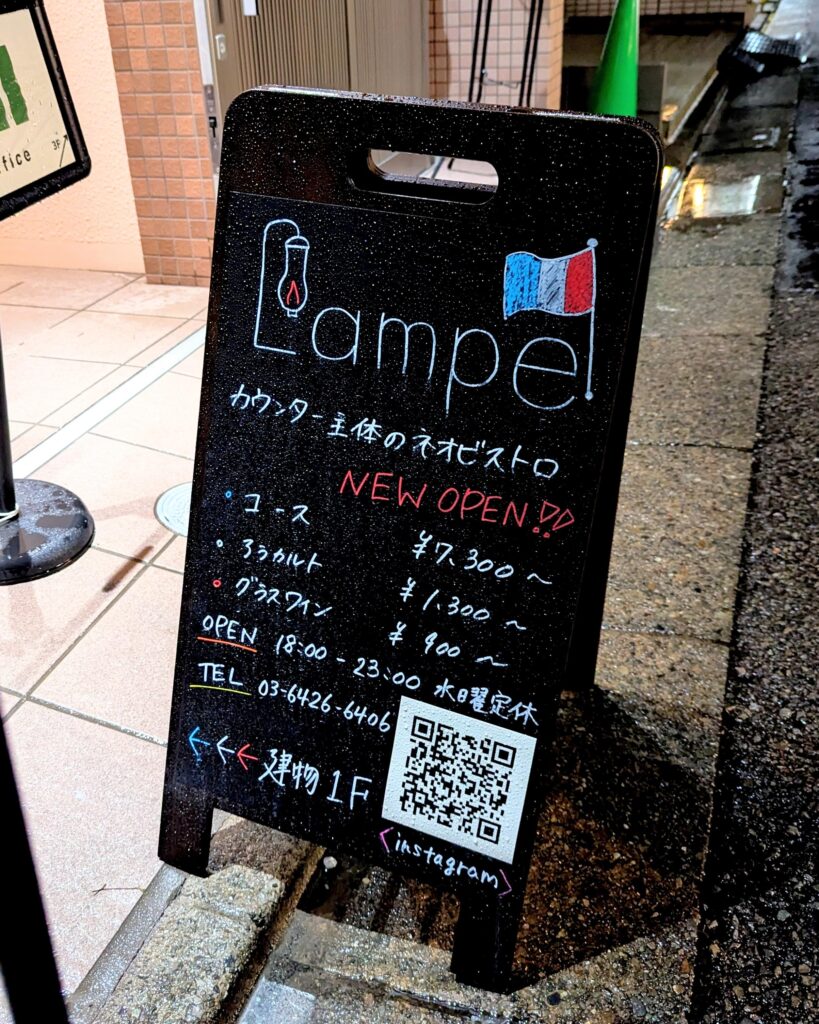 ffice
3F
Lampe
カウンター主体のネオビストロ
NEW OPEN!!
・コース ¥7,300〜
・アラカルト ¥1,300〜
・グラスワイン ¥900〜
OPEN 18:00-23:00 水曜定休
TEL 03-6426-6406
←←←建物1F
<instagram>